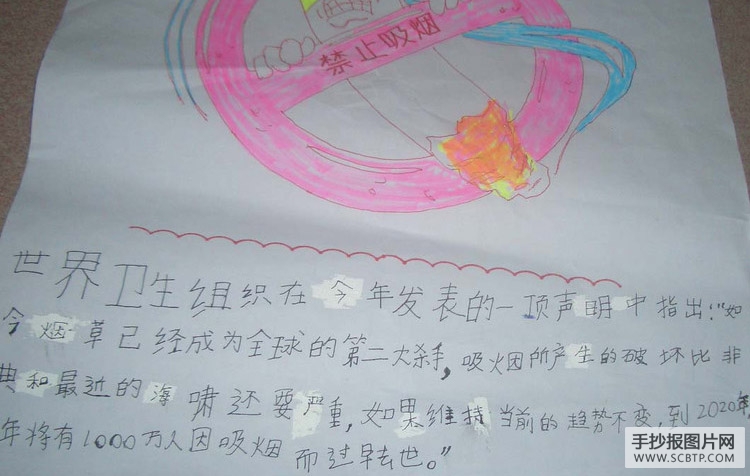 禁止吸烟
世界卫生组织在今年发表的一项声明中指出:"如
今烟草已经成为全球的第二大杀手,吸烟所产生的破坏比非
典和最近的海啸还要严重,如果维持当前的趋势不变,到2020年,
年将有1000万人因吸烟而过早去世。"
手抄报图片网
WWW.SCBTP.COM